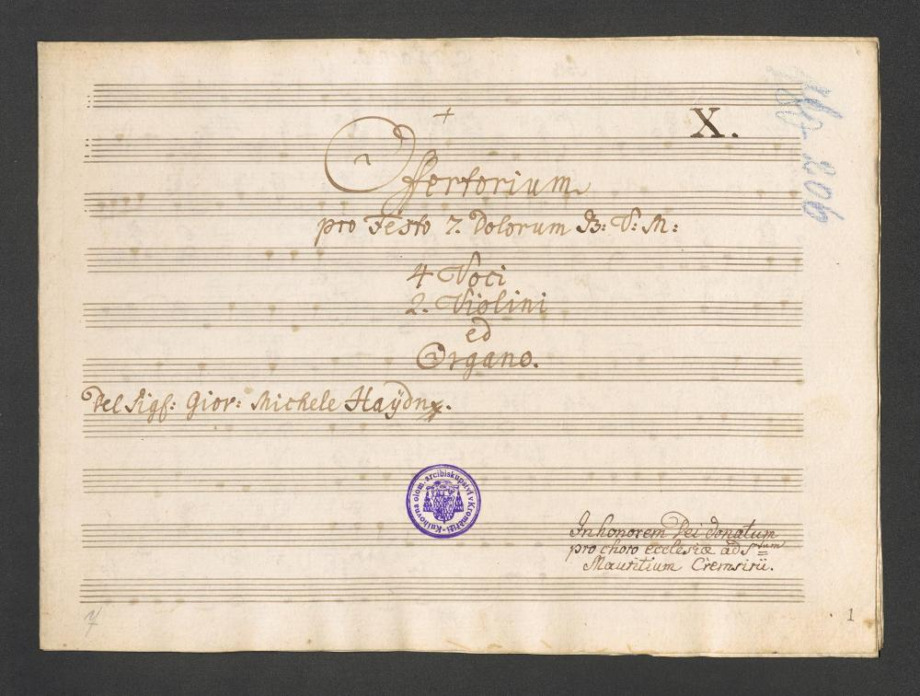 X.
Offertorium
pro Festo 7. Dolorum B: V: M:
4 Voci
2. Violini
ed
Organo.
Del Sigf: Giov: Michele Haÿdn.
Knihovna olom. arcibiskupství v Kroměříži
In honorem Dei donatum
pro choro ecclesiæ ad Stum
Mauritium Cremsirii.
1